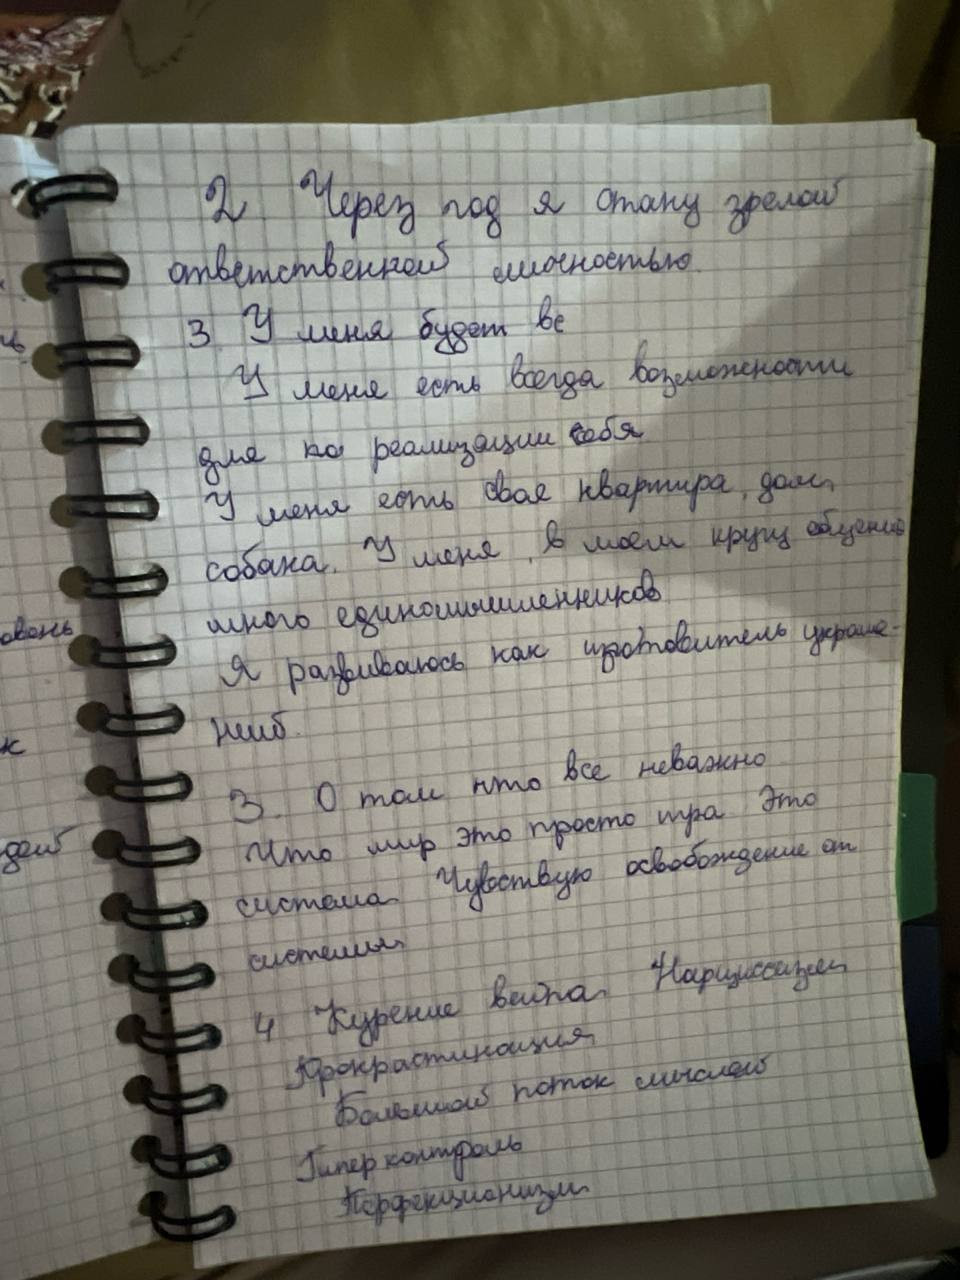 2 Через год я стану зрелой
ответственной личностью.
3. У меня будет вс
У меня есть всегда возможности
для по реализации себя
У меня есть своя квартира, дом,
собака. У меня, в моем кругу общения
много единомышленников
Я развиваюсь как изготовитель украше-
ний.
3. О том что все неважно
Что мир это просто игра. Это
система. Чувствую освобождение от
системы
4 Курение вейпа. Нарциссизм
Прокрастинация
Большой поток мыслей
Гипер контроль
Перфекционизм
овень
к
дей